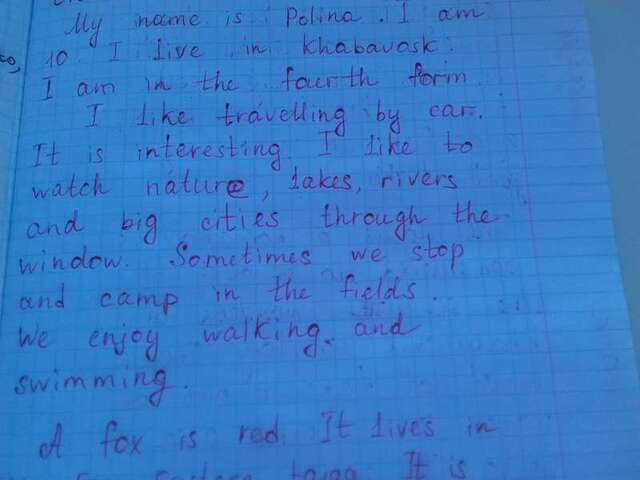 My name is Polina. I am
10. I live in Khabavosk.
I am in the fourth form.
I like travelling by car.
It is interesting. I like to
watch nature, lakes, rivers
and big cities through the
window. Sometimes we stop
and camp in the fields.
We enjoy walking and
swimming.
A fox is red. It lives in
It is